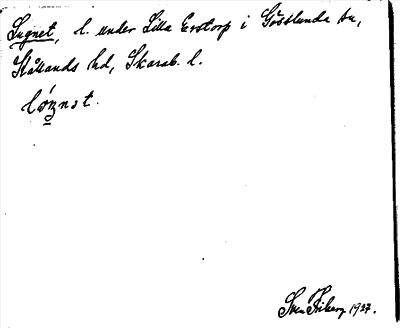 Lugnet, l. under Lilla Erstorp i Göstlunda sn,
Kållands hd, Skarab. l.
Sven Friberg 1927.